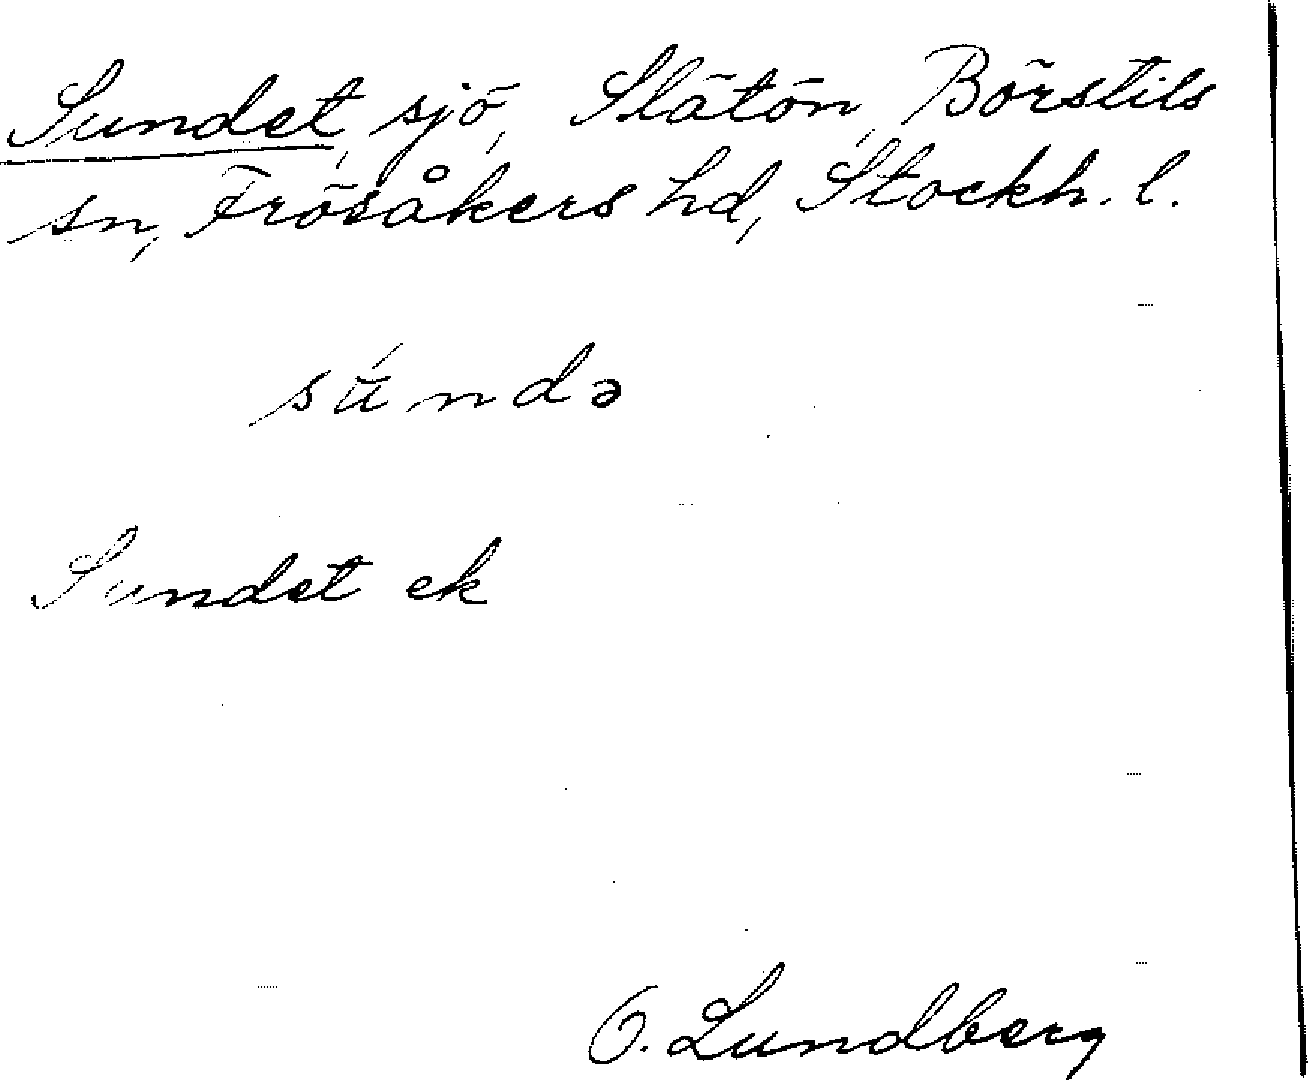 Sundet, sjö, Slätön, Börstils
sn, Frösåkers hd, Stockh. l.
súndə
Sundet ek
O. Lundberg